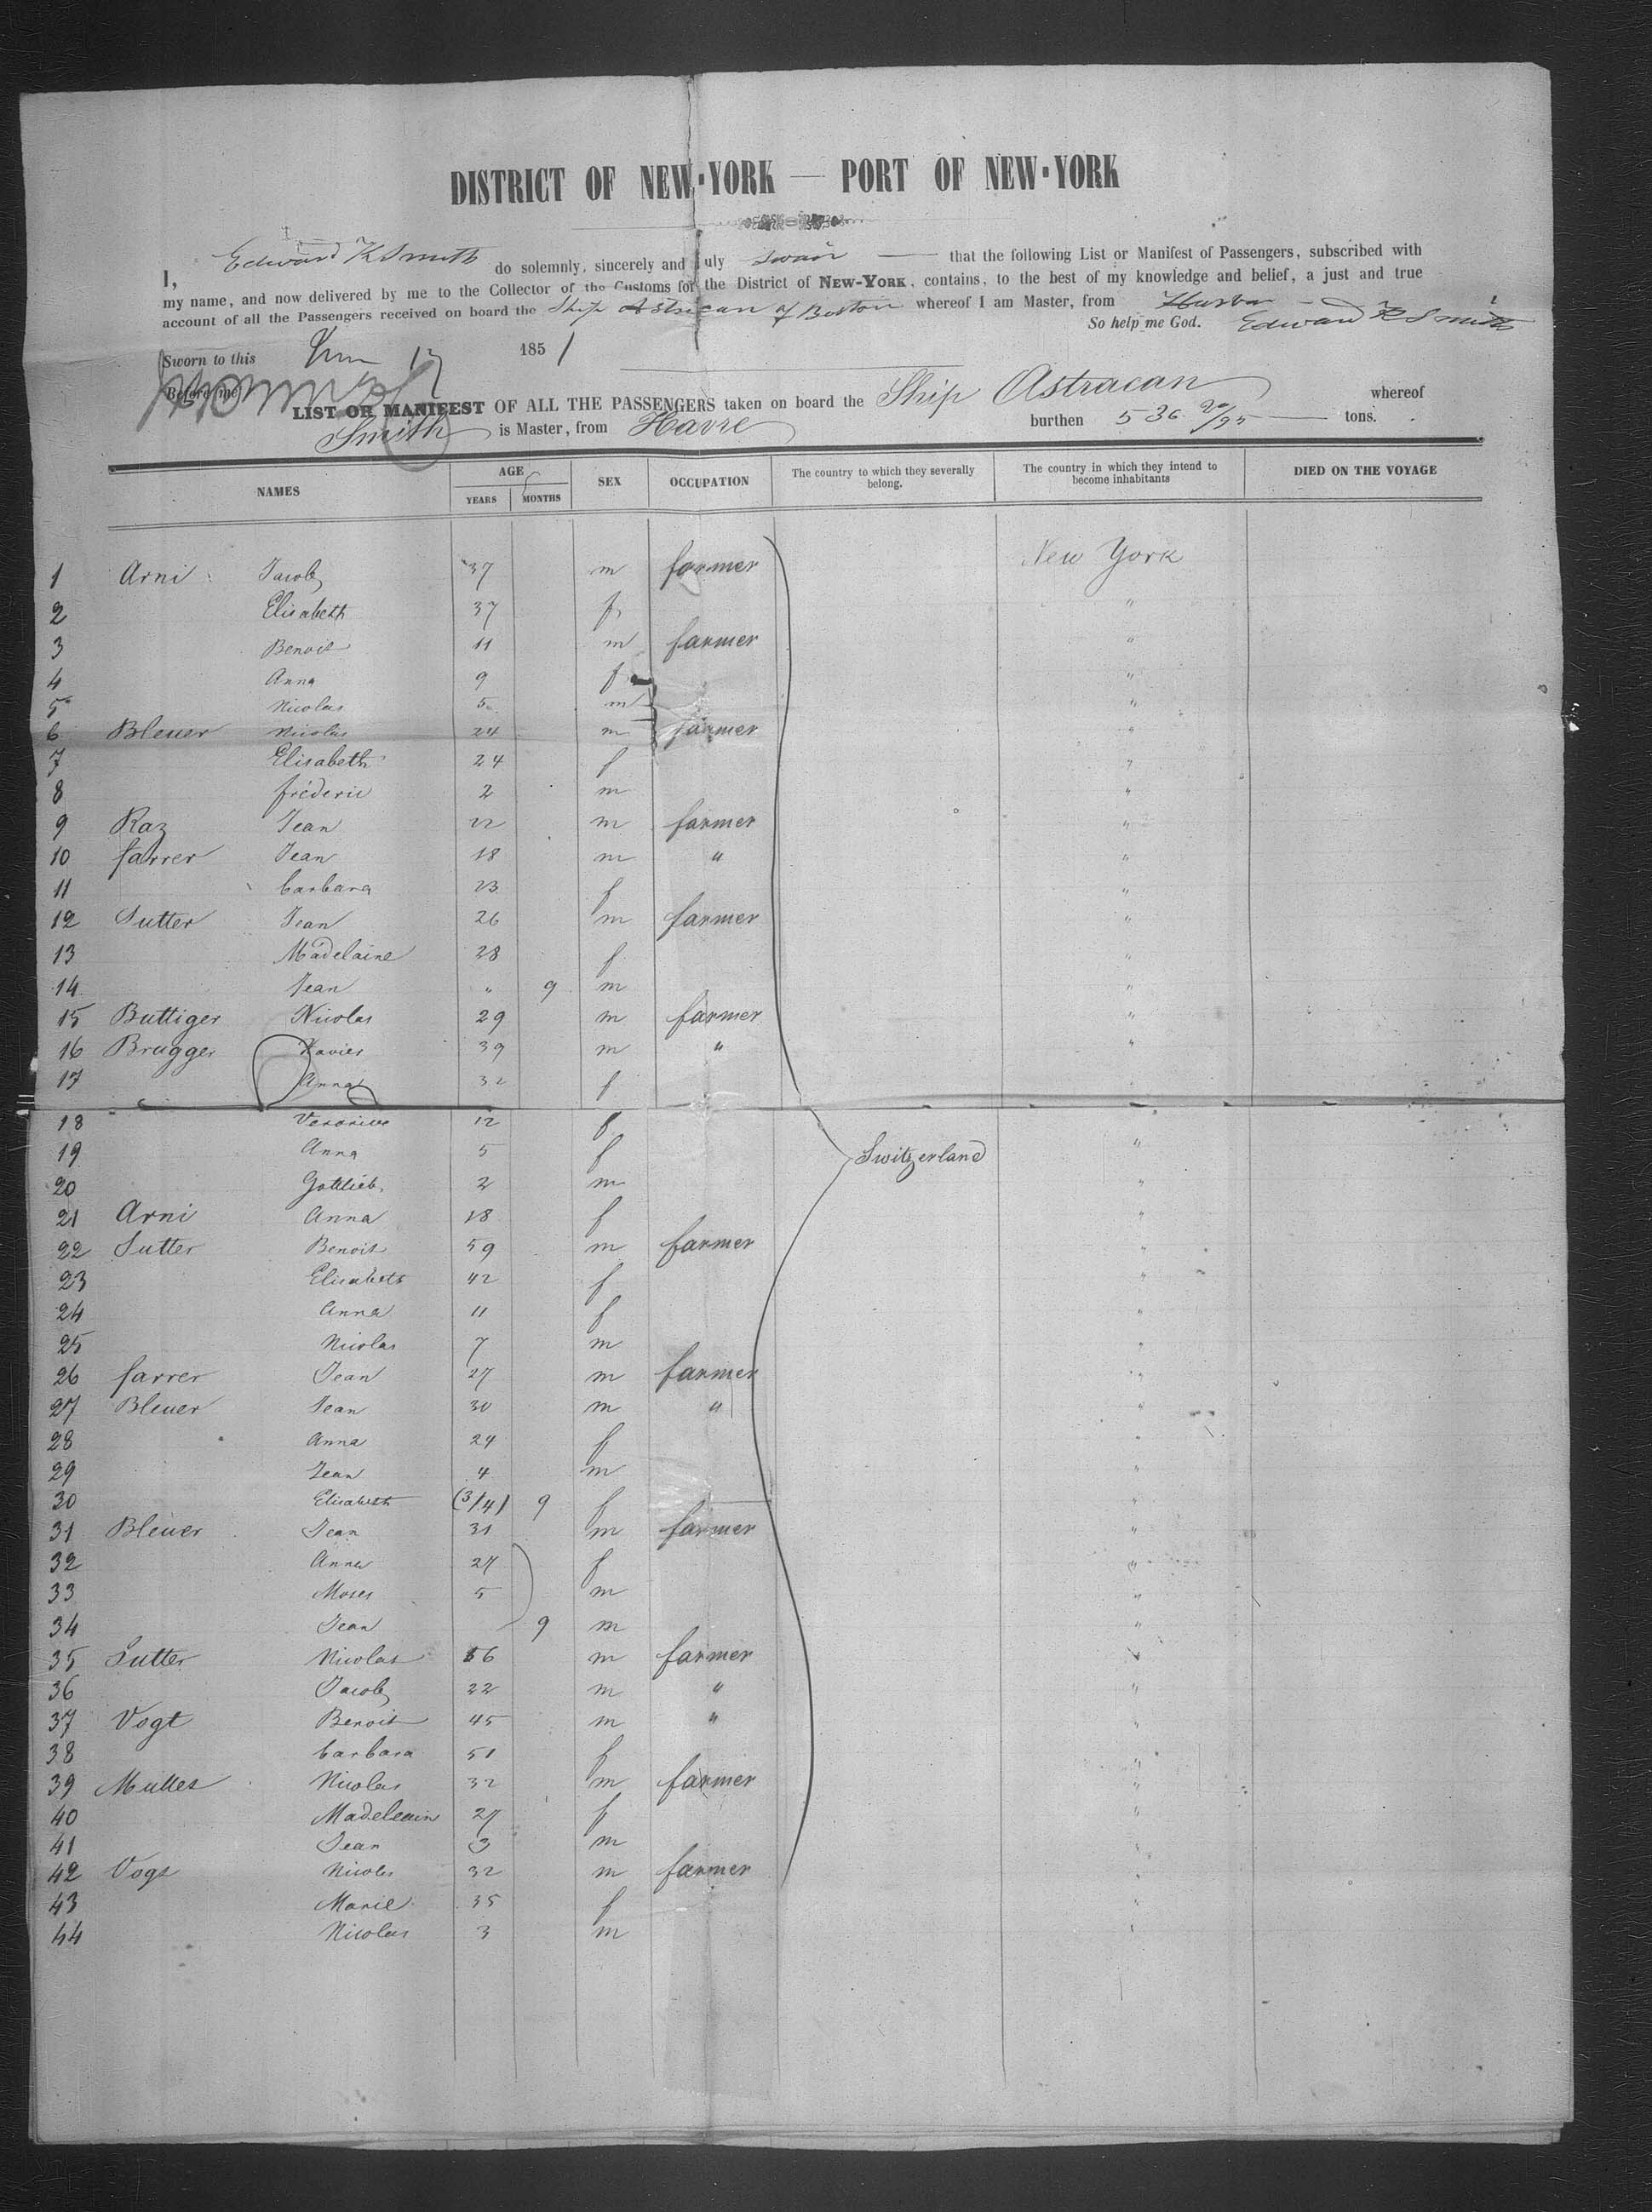 DISTRICT OF NEW-YORK — PORT OF NEW-YORK
I, Edward K Smith do solemnly, sincerely and duly swair — that the following List or Manifest of Passengers, subscribed with
my name, and now delivered by me to the Collector of the Customs for the District of NEW-YORK, contains, to the best of my knowledge and belief, a just and true
account of all the Passengers received on board the Ship Astracan of Boston whereof I am Master, from
So help me God. Edward K Smith
Sworn to this 1851
Before me
LIST OR MANIFEST OF ALL THE PASSENGERS taken on board the Ship Astracan whereof
Smith is Master, from Havre burthen 536 20/95 tons.
NAMES AGE YEARS MONTHS SEX OCCUPATION The country to which they severally belong. The country in which they intend to become inhabitants DIED ON THE VOYAGE
1 Arni Jacob 37 m farmer New York
2 Elisabeth 37 f "
3 Benoit 11 m farmer "
4 Anna 9 f "
5 Nicolas 5 m "
6 Bleuer Nicolas 24 m farmer "
7 Elisabeth 24 f "
8 fréderic 2 m "
9 Raz Jean 22 m farmer "
10 farrer Jean 18 m " "
11 barbara 23 f "
12 Sutter Jean 26 m farmer "
13 Madelaine 28 f "
14 Jean " 9 m "
15 Buttiger Nicolas 29 m farmer "
16 Brugger Xavier 39 m " "
17 Anna 32 f "
18 Veronica 12 f
19 Anna 5 f Switzerland "
20 Gottlieb 2 m "
21 Arni Anna 18 f "
22 Sutter Benoit 59 m farmer "
23 Elisabeth 42 f "
24 Anna 11 f "
25 Nicolas 7 m "
26 farrer Jean 27 m farmer "
27 Bleuer Jean 30 m " "
28 Anna 24 f "
29 Jean 4 m "
30 Elisabeth (3/4) 9 f "
31 Bleuer Jean 31 m farmer "
32 Anna 27 f "
33 Moses 5 m "
34 Jean 9 m "
35 Sutter Nicolas 56 m farmer "
36 Jacob 22 m " "
37 Vogt Benoit 45 m " "
38 barbara 51 f "
39 Muller Nicolas 32 m farmer "
40 Madelein 27 f "
41 Jean 3 m "
42 Vogt Nicolas 32 m farmer "
43 Marie 35 f "
44 Nicolas 3 m "